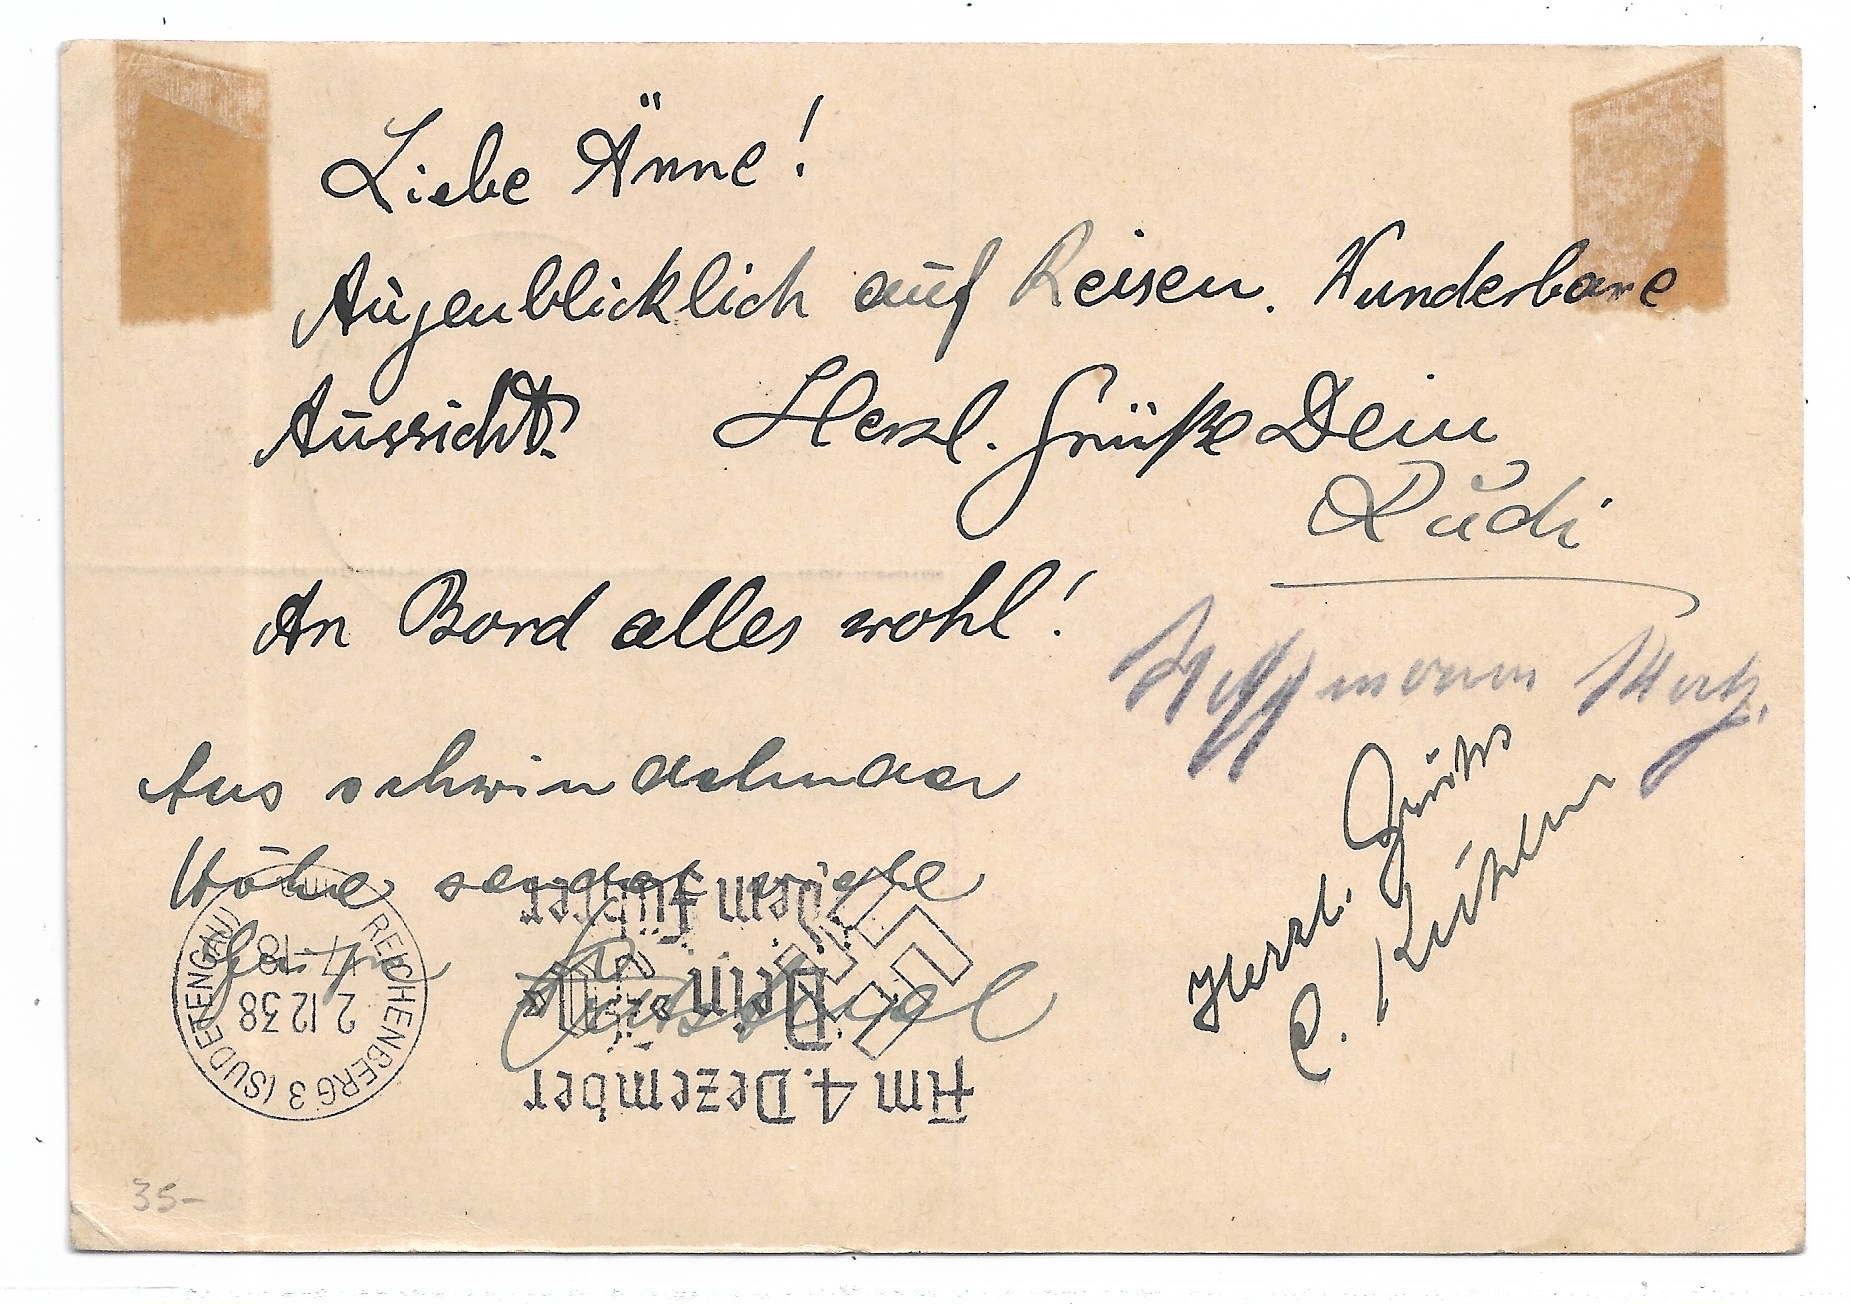 Liebe Änne!
Augenblicklich auf Reisen. Wunderbare
Aussicht. Herzl. Grüße Dein
Rudi
An Bord alles wohl!
Aus schwindelnder
Höhe sendet viele
Grüße
Herzl. Grüße
C.
REICHENBERG 3 (SUDETENGAU)
2.12.38
17-18
Am 4. Dezember
Dein Ja
Dem Führer
35-